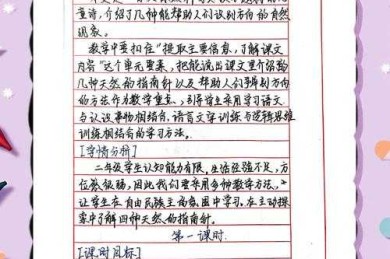 童诗,介绍了几种能帮助人们识别方向的自然
现象。
教学中要扣住“提取主要信息,了解课文
内容”这个单元要素,把能说出课文里介绍的
几种天然的指南针以及帮助人们辨别方向
的方法作为教学重点,引导学生采用学习语文
与认识事物相结合,语言文字训练与逻辑思维
训练相结合的学习方法。
[学情分析]
二年级学生认知能力有限,生活经验不足,方
位感较弱,因此我们要采用多种教学方法,让
让学生在自由民族主的氛围中学习。在主动探
索中了解四种天然的指南针。
第一课时
[课时目标]